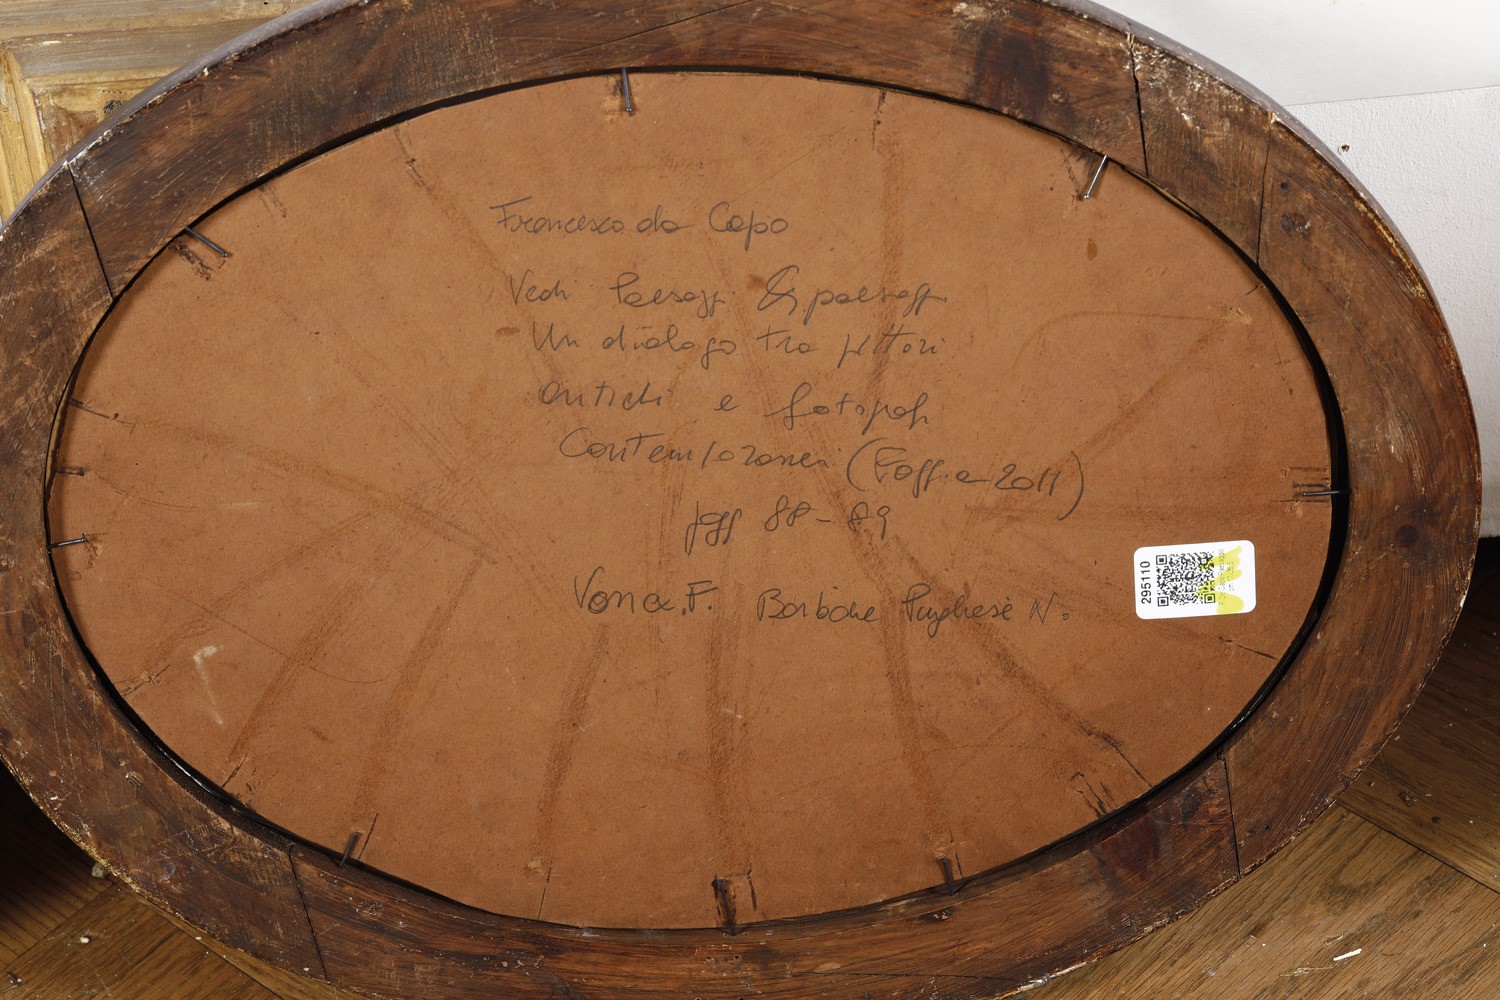 Francesco da Capo
Vedi Paesagg & paesagg
Un dialogo tra pittori
antichi e fotografi
Contemporanei (Foggia 2011)
pgg 88-89
Vona.F. Barbone Pugliese N.
295110